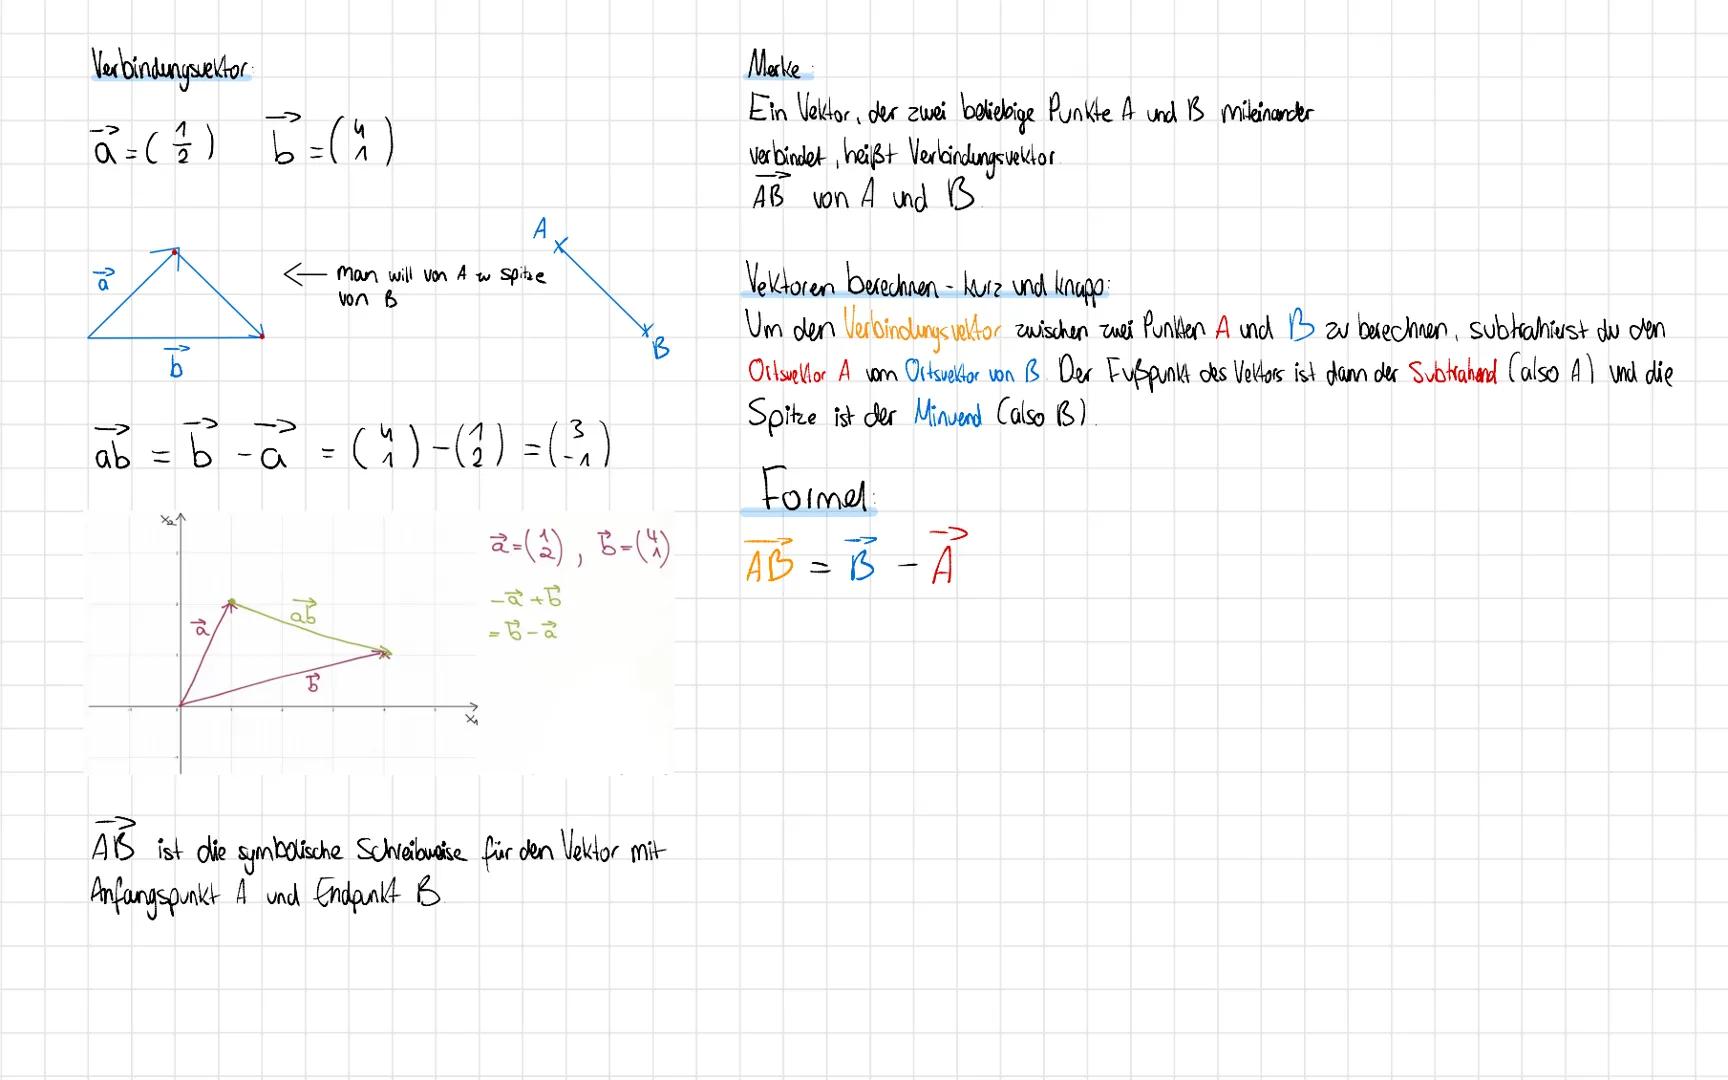 Verbindungsvektor:
a⃗ = (1/2) b⃗ = (4 1)
A
a⃗
← man will von A zu Spitze
von B
B
b⃗
ab⃗ = b⃗ - a⃗ = (4 1) - (1 2) = (3 -1)
x₂
a⃗ = (1 2), b⃗ = (4 1)
-a⃗ + b⃗
= b⃗ - a⃗
ab⃗
a⃗
b⃗
x₁
AB⃗ ist die symbolische Schreibweise für den Vektor mit
Anfangspunkt A und Endpunkt B
Merke:
Ein Vektor, der zwei beliebige Punkte A und B miteinander
verbindet, heißt Verbindungsvektor
AB⃗ von A und B.
Vektoren berechnen - kurz und knapp:
Um den Verbindungsvektor zwischen zwei Punkten A und B zu berechnen, subtrahierst du den
Ortsvektor A vom Ortsvektor von B. Der Fußpunkt des Vektors ist dann der Subtrahend (also A) und die
Spitze ist der Minuend (also B).
Formel:
AB⃗ = B⃗ - A⃗